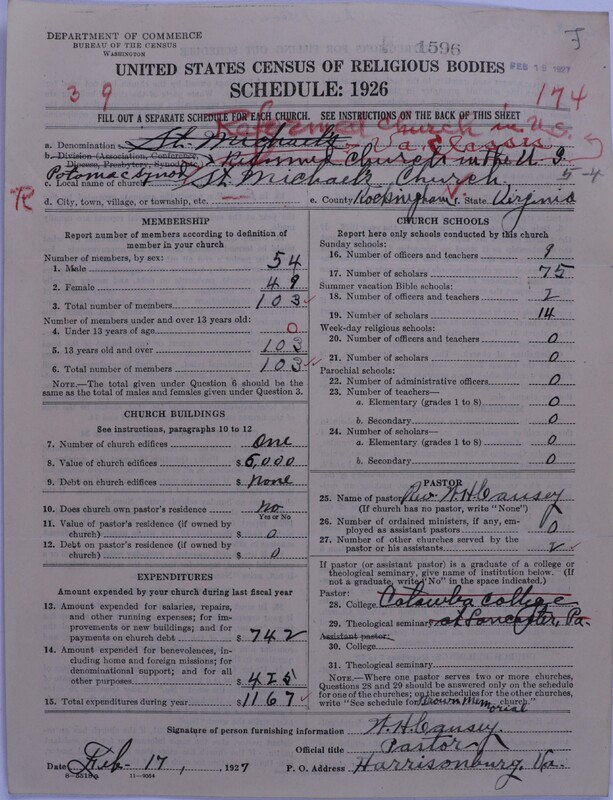 DEPARTMENT OF COMMERCE
BUREAU OF THE CENSUS
WASHINGTON
1596
FEB 19 1927
J
UNITED STATES CENSUS OF RELIGIOUS BODIES
SCHEDULE: 1926
3 9
174
FILL OUT A SEPARATE SCHEDULE FOR EACH CHURCH. SEE INSTRUCTIONS ON THE BACK OF THIS SHEET
Reformed Church in U.S.
a. Denomination St. Michaels - Va Classis
b. Division (Association, Conference, Diocese, Presbytery, Synod, etc.) Reformed Church in the U. S.
Potomac Synod
5-4
c. Local name of church St. Michaels Church
R
d. City, town, village, or township, etc. — e. County Rockingham f. State Virginia
MEMBERSHIP
Report number of members according to definition of member in your church
Number of members, by sex:
1. Male 54
2. Female 49
3. Total number of members 103
Number of members under and over 13 years old:
4. Under 13 years of age 0
5. 13 years old and over 103
6. Total number of members 103
NOTE.—The total given under Question 6 should be the same as the total of males and females given under Question 3.
CHURCH BUILDINGS
See instructions, paragraphs 10 to 12
7. Number of church edifices One
8. Value of church edifices $ 5,000
9. Debt on church edifices $ None
10. Does church own pastor's residence No
Yes or No
11. Value of pastor's residence (if owned by church) $ 0
12. Debt on pastor's residence (if owned by church) $ 0
EXPENDITURES
Amount expended by your church during last fiscal year
13. Amount expended for salaries, repairs, and other running expenses; for improvements or new buildings; and for payments on church debt $ 742
14. Amount expended for benevolences, including home and foreign missions; for denominational support; and for all other purposes $ 425
15. Total expenditures during year $ 1167
CHURCH SCHOOLS
Report here only schools conducted by this church
Sunday schools:
16. Number of officers and teachers 9
17. Number of scholars 75
Summer vacation Bible schools:
18. Number of officers and teachers 2
19. Number of scholars 14
Week-day religious schools:
20. Number of officers and teachers 0
21. Number of scholars 0
Parochial schools:
22. Number of administrative officers 0
23. Number of teachers—
a. Elementary (grades 1 to 8) 0
b. Secondary 0
24. Number of scholars—
a. Elementary (grades 1 to 8) 0
b. Secondary 0
PASTOR
25. Name of pastor Rev. W. H. Causey
(If church has no pastor, write "None")
26. Number of ordained ministers, if any, employed as assistant pastors 0
27. Number of other churches served by the pastor or his assistants 2
If pastor (or assistant pastor) is a graduate of a college or theological seminary, give name of institution below. (If not a graduate, write "No" in the space indicated.)
Pastor:
28. College Catawba College
29. Theological seminary at Lancaster, Pa.
Assistant pastor:
30. College
31. Theological seminary
NOTE.—Where one pastor serves two or more churches, Questions 28 and 29 should be answered only on the schedule for one of the churches; on the schedules for the other churches, write "See schedule for Brown Memorial church."
Signature of person furnishing information W. H. Causey
Official title Pastor
Date Feb. 17, 1927 P. O. Address Harrisonburg, Va.
11—9054